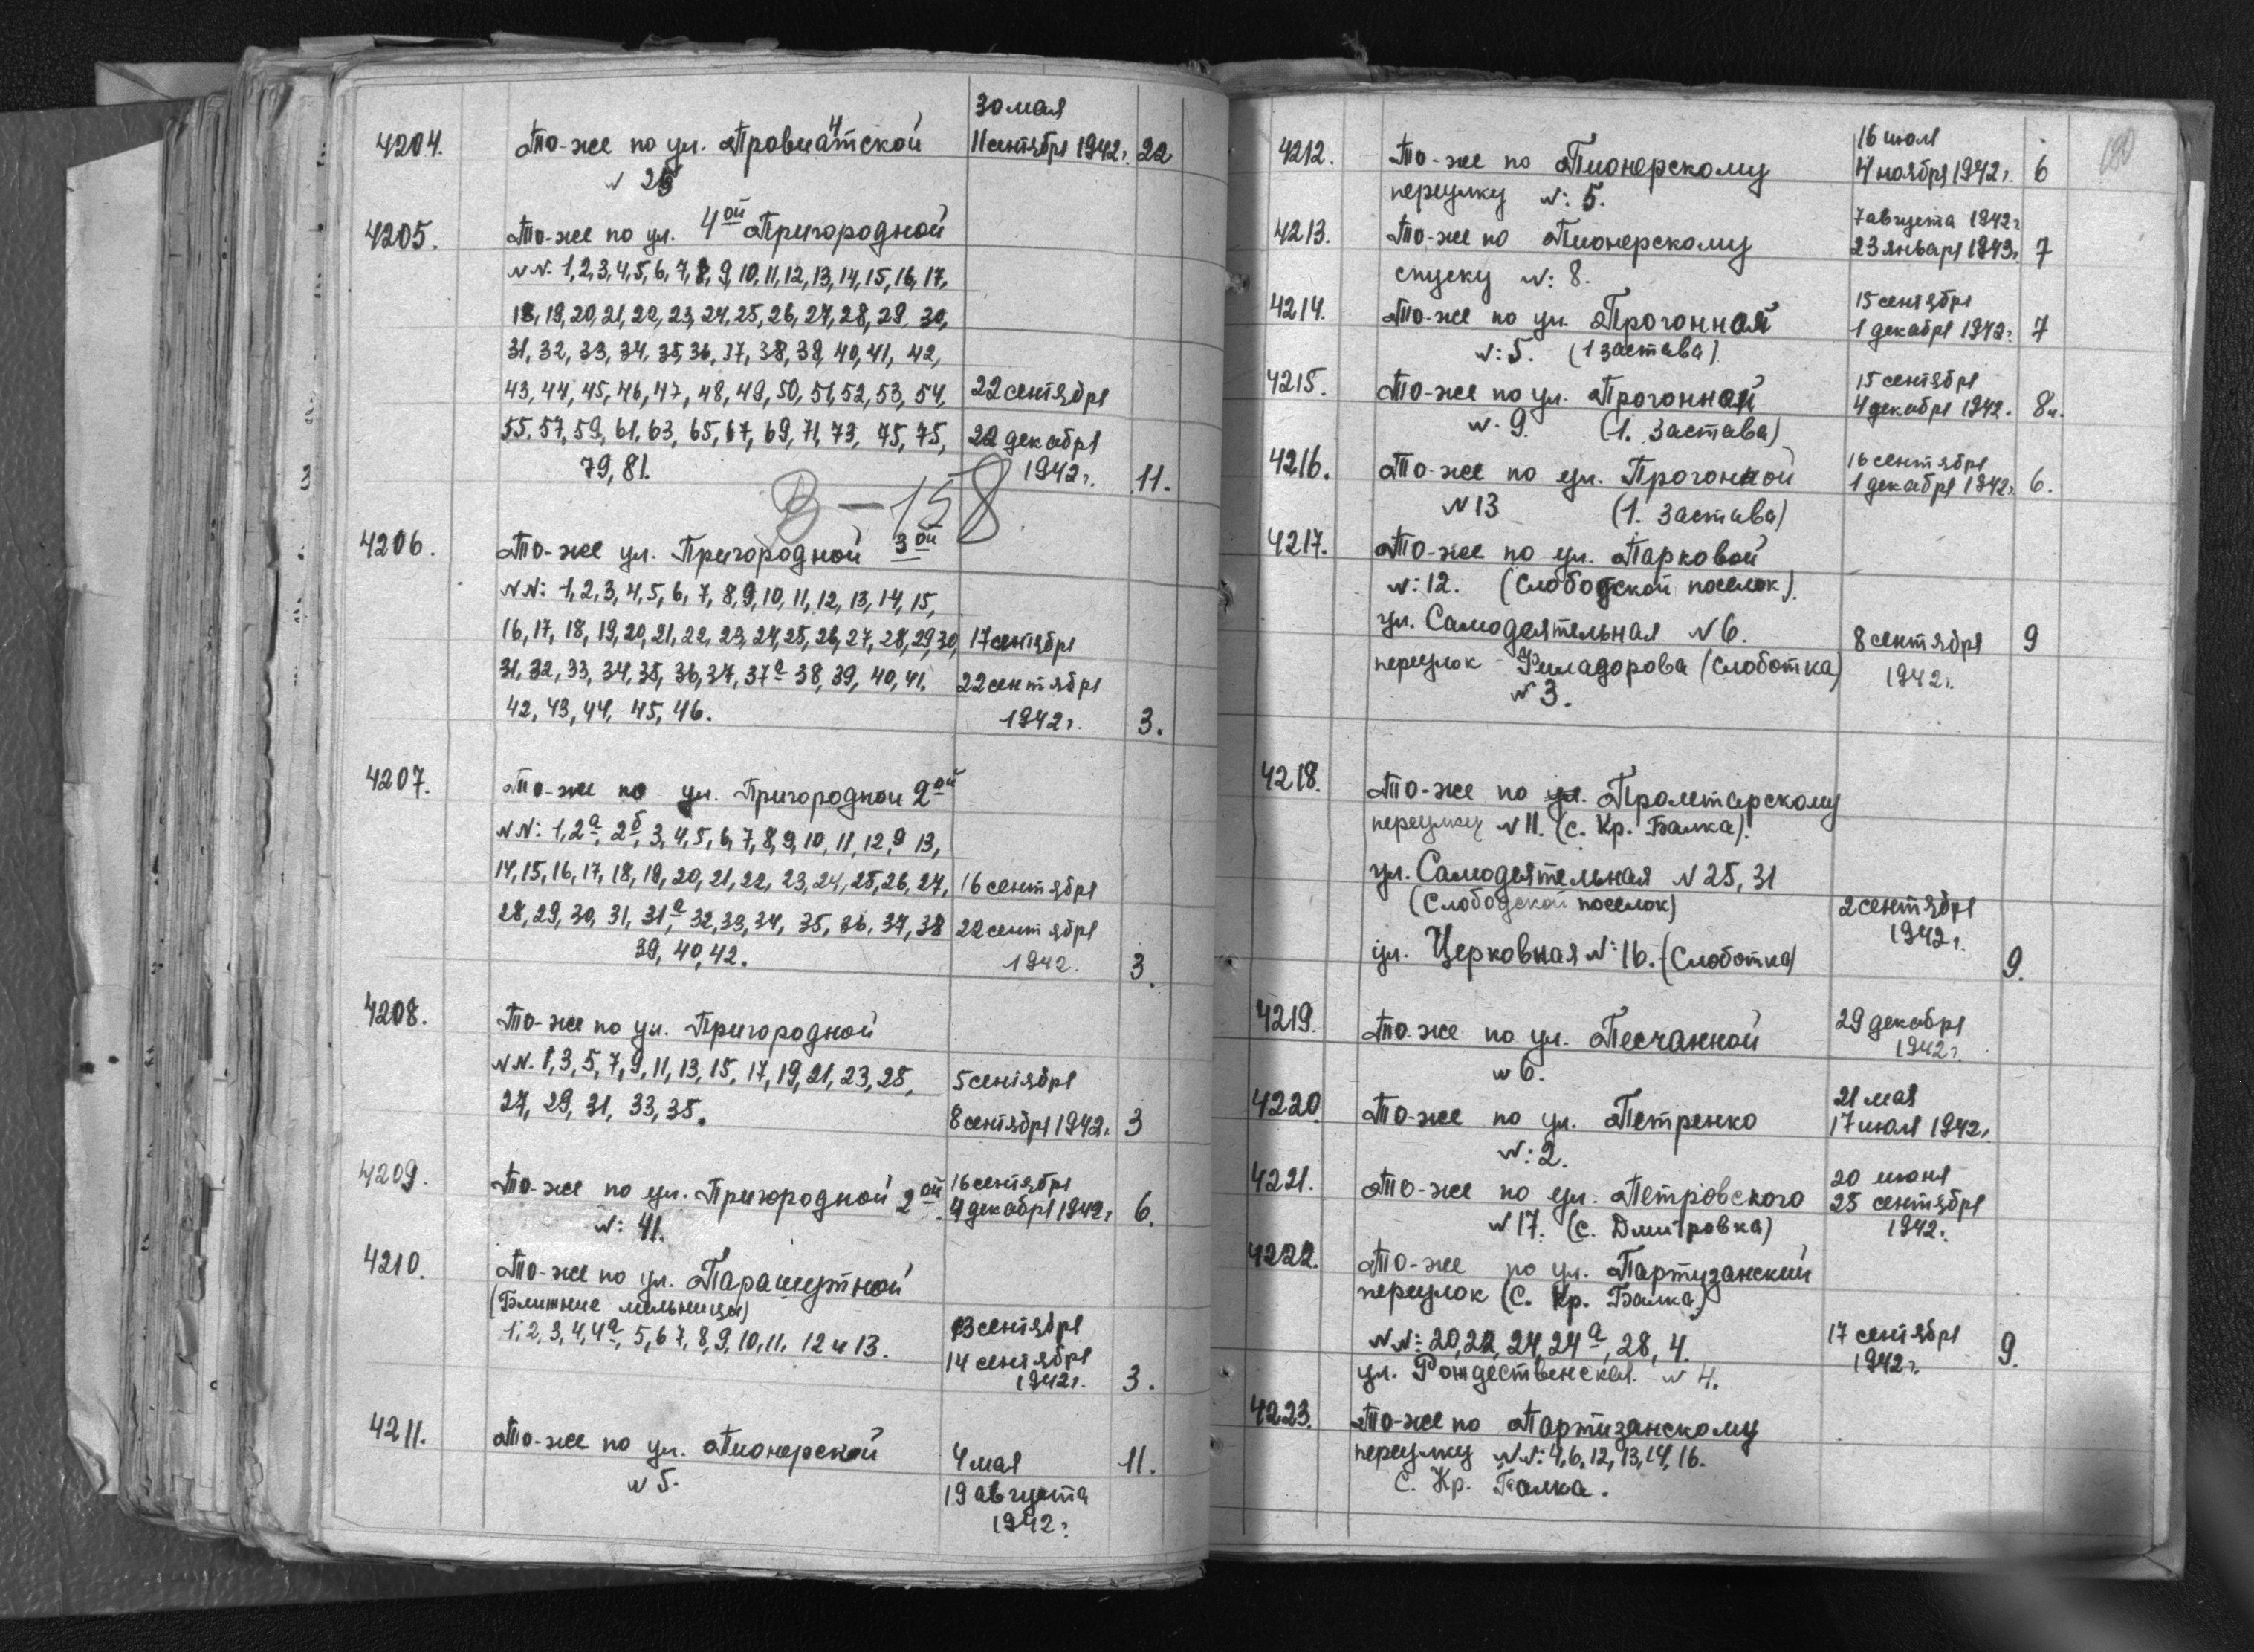 30 мая
4204. То-же по ул. Провиантской 11 сентября 1942г. 22
N 25
4205. То-же по ул. 4ой Пригородной
NN: 1,2,3,4,5,6,7,8,9,10,11,12,13,14,15,16,17,
18,19,20,21,22,23,24,25,26,27,28,29,30,
31,32,33,34,35,36,37,38,39,40,41,42,
43,44,45,46,47,48,49,50,51,52,53,54, 22 сентября
55,57,59,61,63,65,67,69,71,73,75,75, 22 декабря
79,81. 1942г. 11.
В-158
4206. То-же ул. Пригородной 3ой
NN: 1,2,3,4,5,6,7,8,9,10,11,12,13,14,15,
16,17,18,19,20,21,22,23,24,25,26,27,28,29,30, 17 сентября
31,32,33,34,35,36,37,37а 38,39,40,41. 22 сентября
42,43,44,45,46. 1942г. 3.
4207. То-же по ул. Пригородной 2ой
NN: 1,2а, 2б, 3,4,5,6,7,8,9,10,11,12,а 13,
14,15,16,17,18,19,20,21,22,23,24,25,26,27, 16 сентября
28,29,30,31,31а 32,33,34,35,36,37,38 22 сентября
39,40,42. 1942. 3.
4208. То-же по ул. Пригородной
NN. 1,3,5,7,9,11,13,15,17,19,21,23,25, 5 сентября
27,29,31,33,35. 8 сентября 1942г. 3
4209. То-же по ул. Пригородной 2ой 16 сентября
N: 41. 4 декабря 1942г 6.
4210. То-же по ул. Парашютной
(Ближние мельницы)
1,2,3,4,4а, 5,6,7,8,9,10,11, 12 и 13. 13 сентября
14 сентября
1942г. 3.
4211. То-же по ул. Пионерской 4 мая 11.
N 5. 19 августа
1942г.
180
16 июля
4212. То-же по Пионерскому 4 ноября 1942г. 6
переулку N: 5.
7 августа 1942г
4213. То-же по Пионерскому 23 января 1943г. 7
спуску N: 8.
15 сентября
4214. То-же по ул. Прогонной 1 декабря 1942г. 7
N: 5. (1 застава)
15 сентября
4215. То-же по ул. Прогонной 4 декабря 1942. 8
N. 9. (1. Застава)
16 сентября
4216. То-же по ул. Прогонной 1 декабря 1942г. 6.
N 13 (1. Застава)
4217. То-же по ул. Парковой
N: 12. (Слободской поселок).
ул. Самодеятельная N 6. 8 сентября 9
переулок - Филадорова (Слоботка) 1942г.
N 3.
4218. То-же по ул. Пролетарскому
переулку N 11. (с. Кр. Балка).
ул. Самодеятельная N 25, 31
(Слободской поселок) 2 сентября
1942г.
ул. Церковная N: 16. (Слоботка) 9.
4219. То-же по ул. Песчанной 29 декабря
1942г.
N 6.
4220 То-же по ул. Петренко 21 мая
17 июля 1942г.
N: 2.
4221. То-же по ул. Петровского 20 июня
25 сентября
N 17. (с. Дмитровка) 1942г.
4222. То-же по ул. Партизанский
переулок (с. Кр. Балка)
NN: 20,22,24,24а, 28, 4. 17 сентября 9.
ул. Рождественская N 4. 1942г.
4223. То-же по Партизанскому
переулку NN: 4,6,12,13,14,16.
С. Кр. Балка.